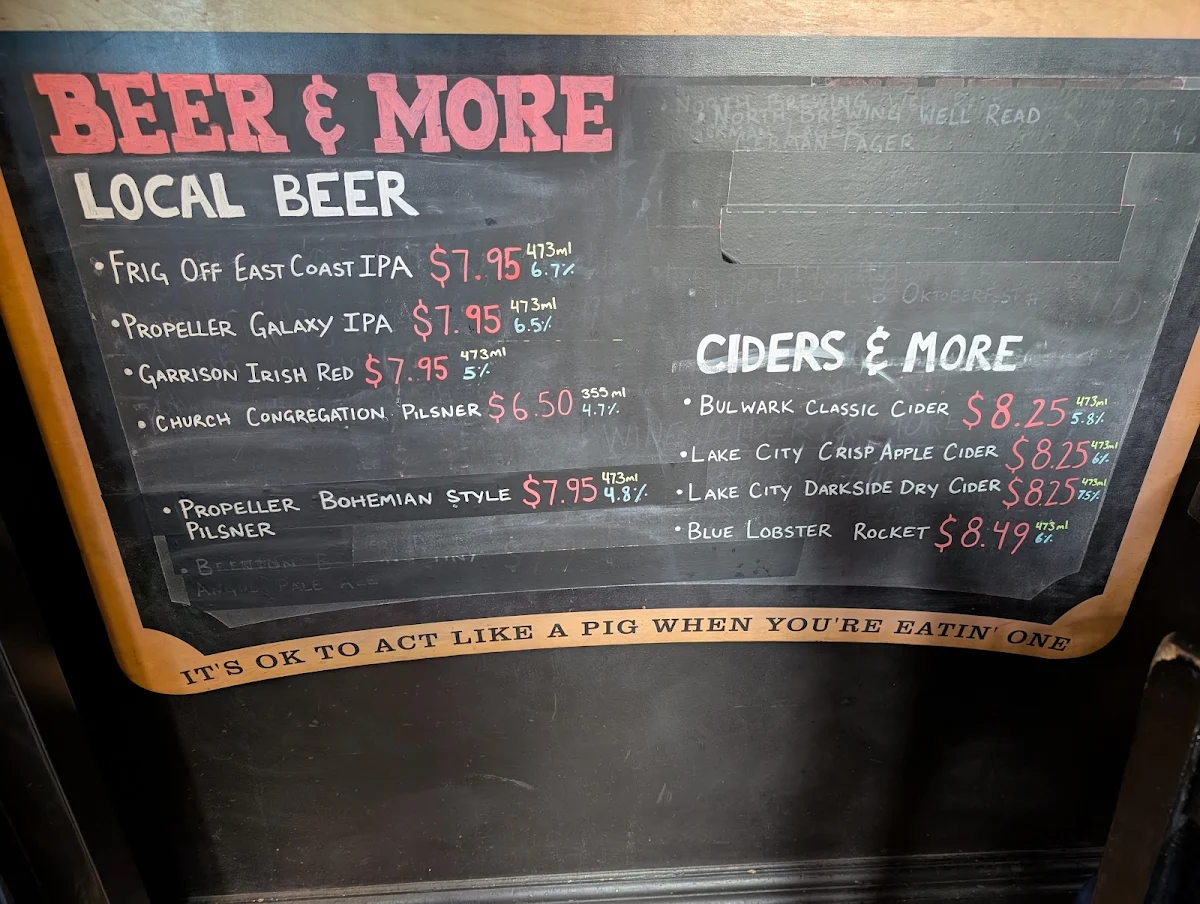 BEER & MORE
LOCAL BEER
• FRIG OFF EAST COAST IPA $7.95 473ml 6.7%
• PROPELLER GALAXY IPA $7.95 473ml 6.5%
• GARRISON IRISH RED $7.95 473ml 5%
• CHURCH CONGREGATION PILSNER $6.50 355ml 4.7%
• PROPELLER BOHEMIAN STYLE $7.95 473ml 4.8%
PILSNER
ANGUS PALE ALE
• NORTH BREWING WELL READ
GERMAN LAGER
OKTOBERFEST
CIDERS & MORE
• BULWARK CLASSIC CIDER $8.25 473ml 5.8%
• LAKE CITY CRISP APPLE CIDER $8.25 473ml 6%
• LAKE CITY DARKSIDE DRY CIDER $825 473ml 75%
• BLUE LOBSTER ROCKET $8.49 473ml 6%
IT'S OK TO ACT LIKE A PIG WHEN YOU'RE EATIN' ONE